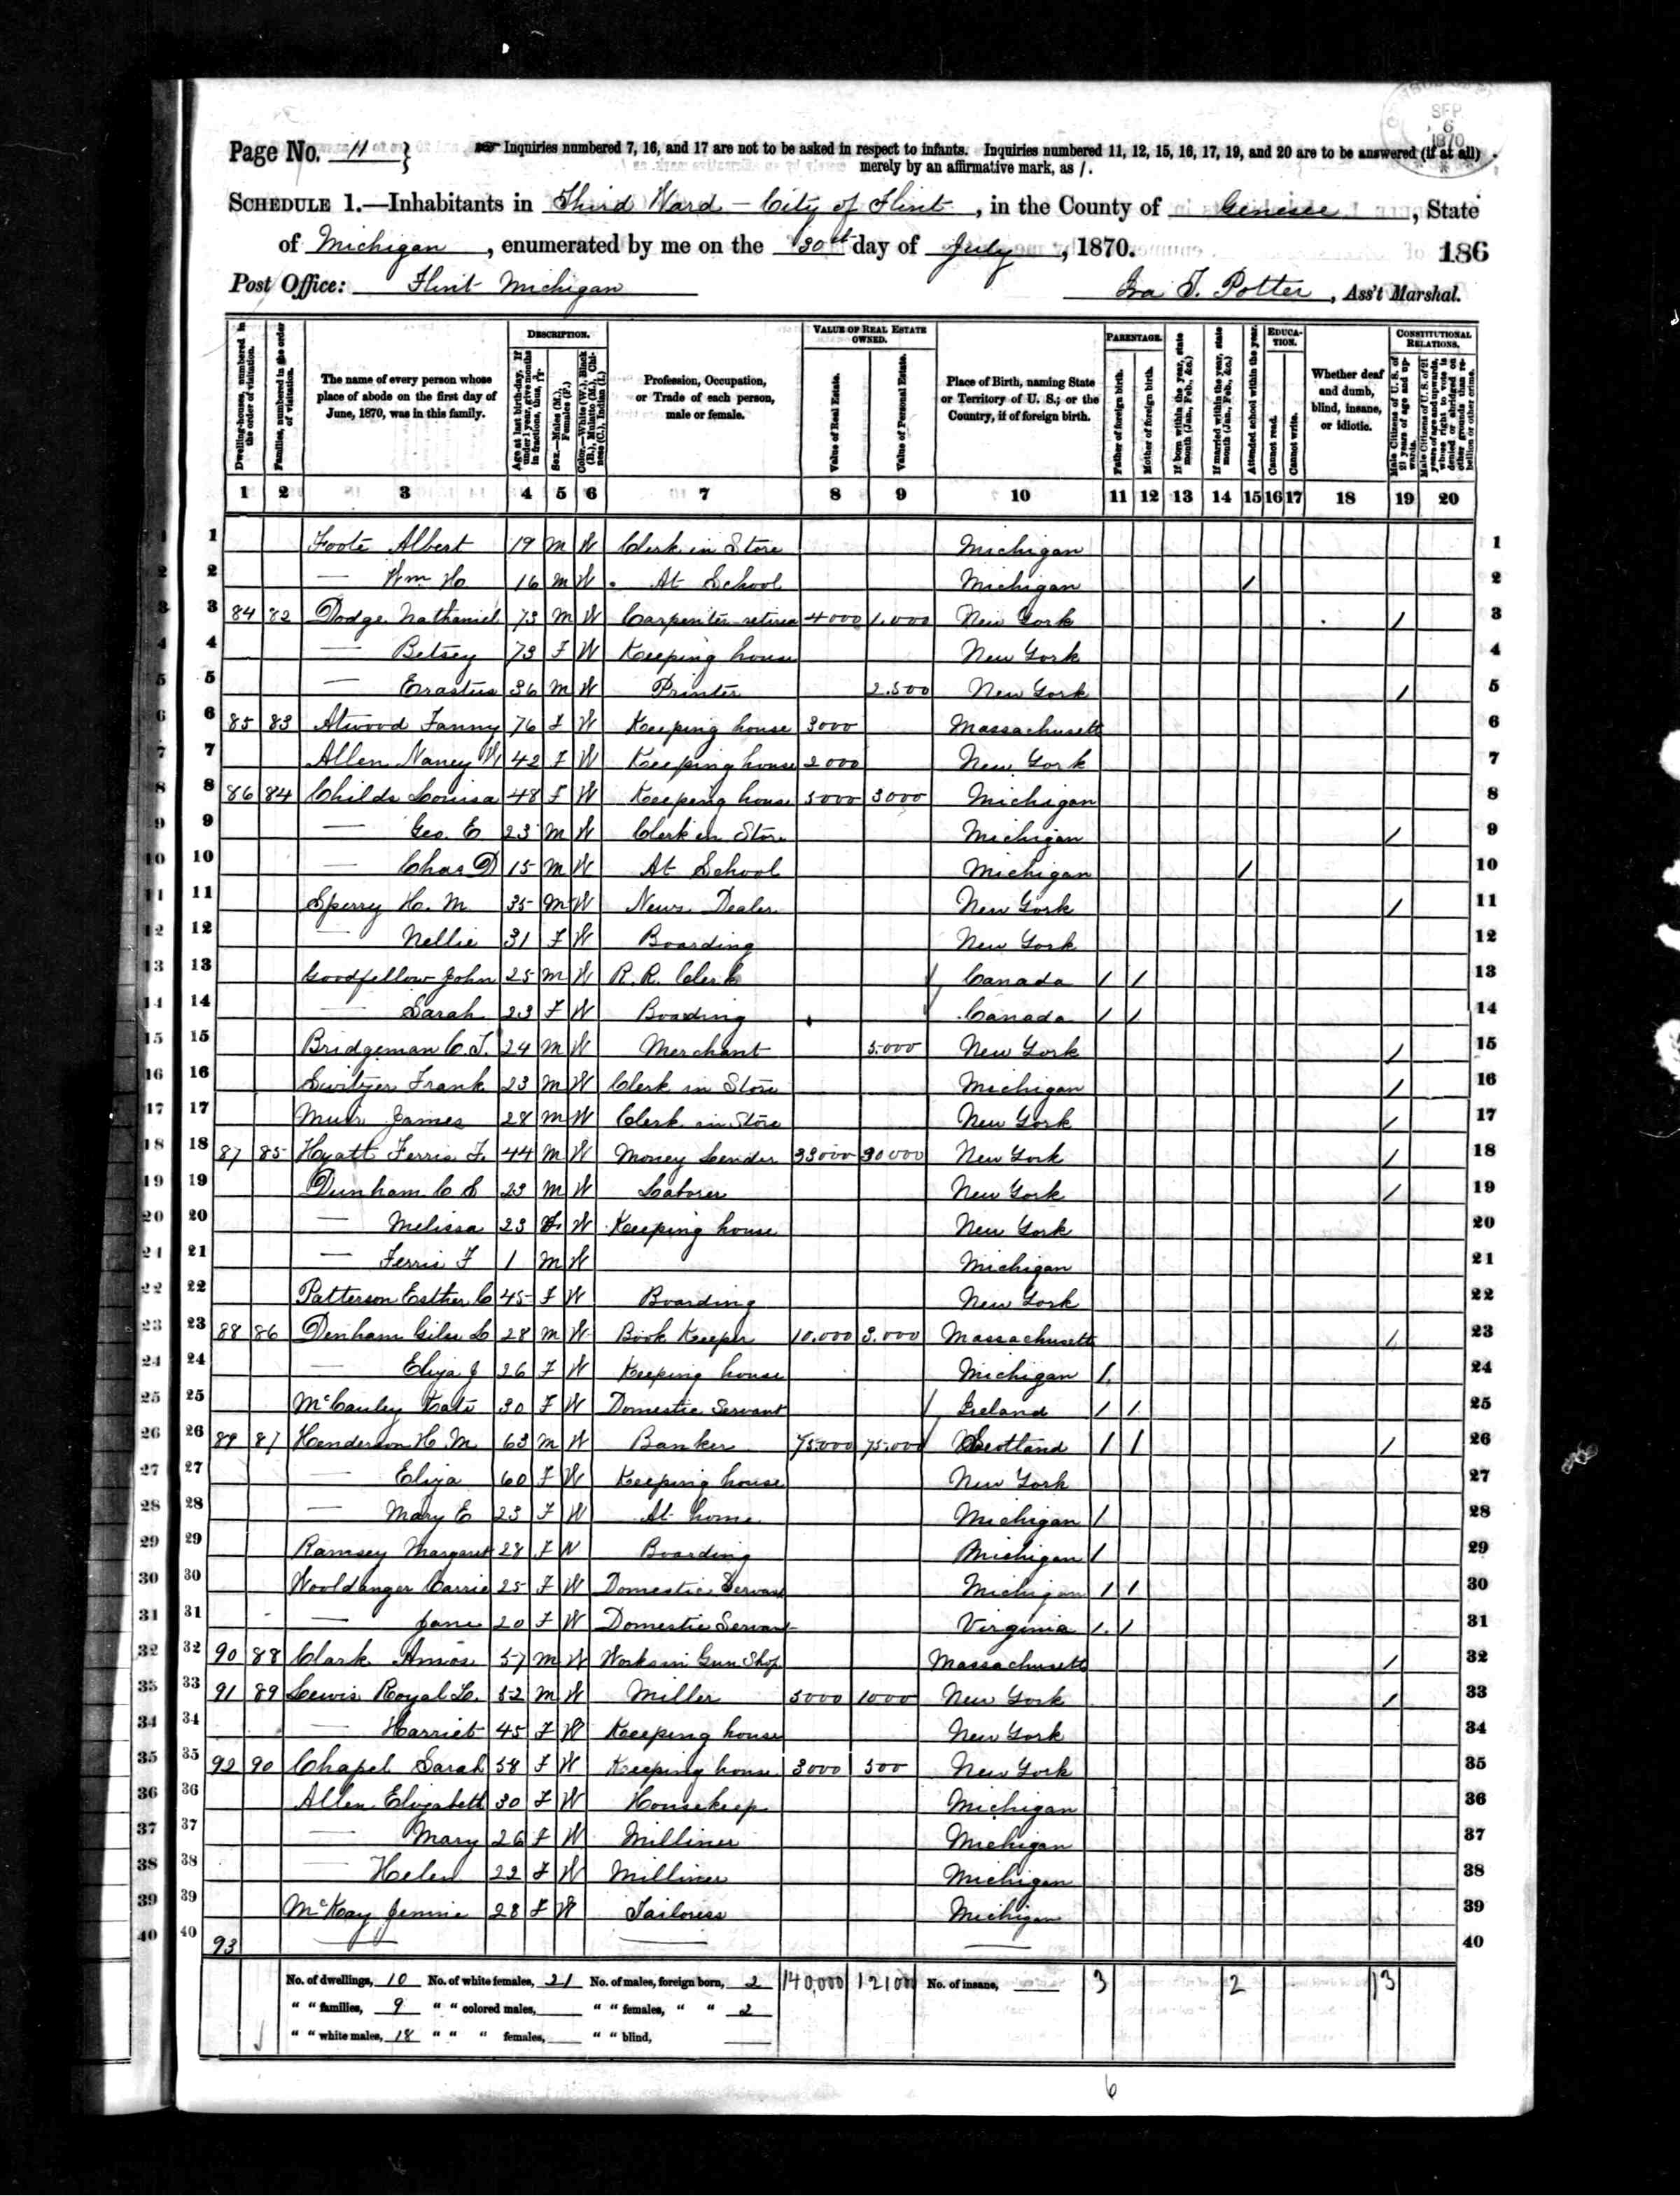 SEP 6 1870
Page No. 11 } Inquiries numbered 7, 16, and 17 are not to be asked in respect to infants. Inquiries numbered 11, 12, 15, 16, 17, 19, and 20 are to be answered (if at all)
merely by an affirmative mark, as /.
SCHEDULE 1.—Inhabitants in Third Ward - City of Flint, in the County of Genesee, State
of Michigan, enumerated by me on the 30th day of July, 1870.
186
Post Office: Flint Michigan
Ira T. Potter, Ass't Marshal.
Dwelling-houses, numbered in the order of visitation.
Families, numbered in the order of visitation.
The name of every person whose place of abode on the first day of June, 1870, was in this family.
DESCRIPTION.
Age at last birth-day. If under 1 year, give months in fractions, thus,
Sex.—Males (M.), Females (F.)
Color.—White (W.), Black (B.), Mulatto (M.), Chinese (C.), Indian (I.)
Profession, Occupation, or Trade of each person, male or female.
VALUE OF REAL ESTATE OWNED.
Value of Real Estate.
Value of Personal Estate.
Place of Birth, naming State or Territory of U. S.; or the Country, if of foreign birth.
PARENTAGE.
Father of foreign birth.
Mother of foreign birth.
If born within the year, state month (Jan., Feb., &c.)
If married within the year, state month (Jan., Feb., &c.)
Attended school within the year.
EDUCATION.
Cannot read.
Cannot write.
Whether deaf and dumb, blind, insane, or idiotic.
CONSTITUTIONAL RELATIONS.
Male Citizens of U. S. of 21 years of age and upwards.
Male Citizens of U. S. of 21 years of age and upwards, whose right to vote is denied or abridged on other grounds than rebellion or other crime.
1 2 3 4 5 6 7 8 9 10 11 12 13 14 15 16 17 18 19 20
1 Foote Albert 19 M W Clerk in Store Michigan 1
2 — Wm H. 16 M W At School Michigan / 2
3 84 82 Dodge Nathaniel 73 M W Carpenter retired 4000 1.000 New York / 3
4 — Betsey 73 F W Keeping house New York 4
5 — Erastus 36 M W Printer 2.500 New York / 5
6 85 83 Atwood Fanny 76 F W Keeping house 3000 Massachusetts 6
7 Allen Nancy W 42 F W Keeping house 2000 New York 7
8 86 84 Childs Louisa 48 F W Keeping house 5000 3000 Michigan 8
9 — Geo. E 23 M W Clerk in Store Michigan / 9
10 — Chas D 15 M W At School Michigan / 10
11 Sperry H. M. 35 M W News Dealer New York / 11
12 — Nellie 31 F W Boarding New York 12
13 Goodfellow John 25 M W R. R. Clerk Canada / / 13
14 — Sarah 23 F W Boarding Canada / / 14
15 Bridgeman C. T. 24 M W Merchant 5.000 New York / 15
16 Switzer Frank 23 M W Clerk in Store Michigan / 16
17 Muir James 28 M W Clerk in Store New York / 17
18 87 85 Hyatt Ferris F. 44 M W Money Lender 33000 30000 New York / 18
19 Dunham C S 23 M W Laborer New York / 19
20 — Melissa 23 F W Keeping house New York 20
21 — Ferris F 1 M W Michigan 21
22 Patterson Esther C 45 F W Boarding New York 22
23 88 86 Denham Giles L 28 M W Book Keeper 10.000 3.000 Massachusetts / 23
24 — Eliza J 26 F W Keeping house Michigan / 24
25 McCauley Kate 30 F W Domestic Servant Ireland / / 25
26 89 87 Henderson H. M. 63 M W Banker 75.000 75.000 Scotland / / / 26
27 — Eliza 60 F W Keeping house New York 27
28 — Mary E 23 F W At home Michigan / 28
29 Ramsey Margaret 28 F W Boarding Michigan / 29
30 Wooldanger Carrie 25 F W Domestic Servant Michigan / / 30
31 — Jane 20 F W Domestic Servant Virginia / / 31
32 90 88 Clark Amos 57 M W Works in Gun Shop Massachusetts / 32
33 91 89 Lewis Royal L. 52 M W Miller 5000 1000 New York / 33
34 — Harriet 45 F W Keeping house New York 34
35 92 90 Chapel Sarah 58 F W Keeping house 3000 500 New York 35
36 Allen Elizabeth 30 F W Housekeep Michigan 36
37 — Mary 26 F W Milliner Michigan 37
38 — Helen 22 F W Milliner Michigan 38
39 McKay Jennie 28 F W Tailoress Michigan 39
40 93 — — — 40
No. of dwellings, 10 No. of white females, 21 No. of males, foreign born, 2 140,000 121000 No. of insane, 3 2 13
" " families, 9 " " colored males, " " females, " " 2
" " white males, 18 " " " females, " " blind,
6